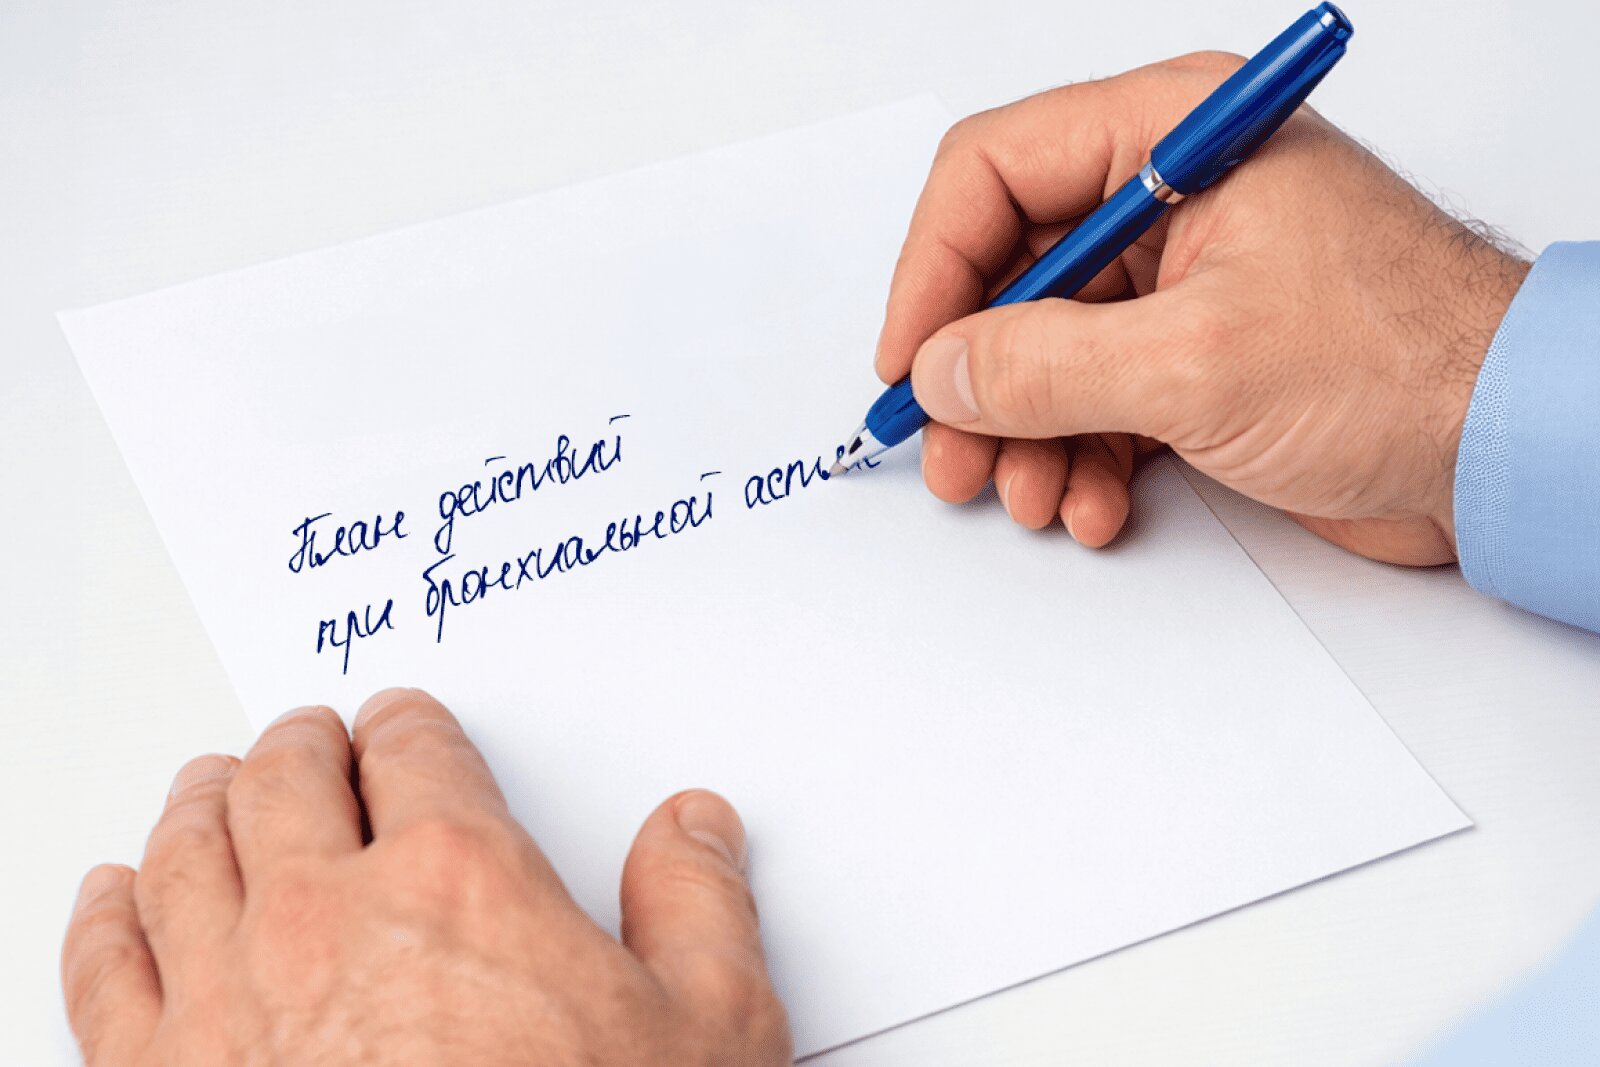 План действий
при бронхиальной астме